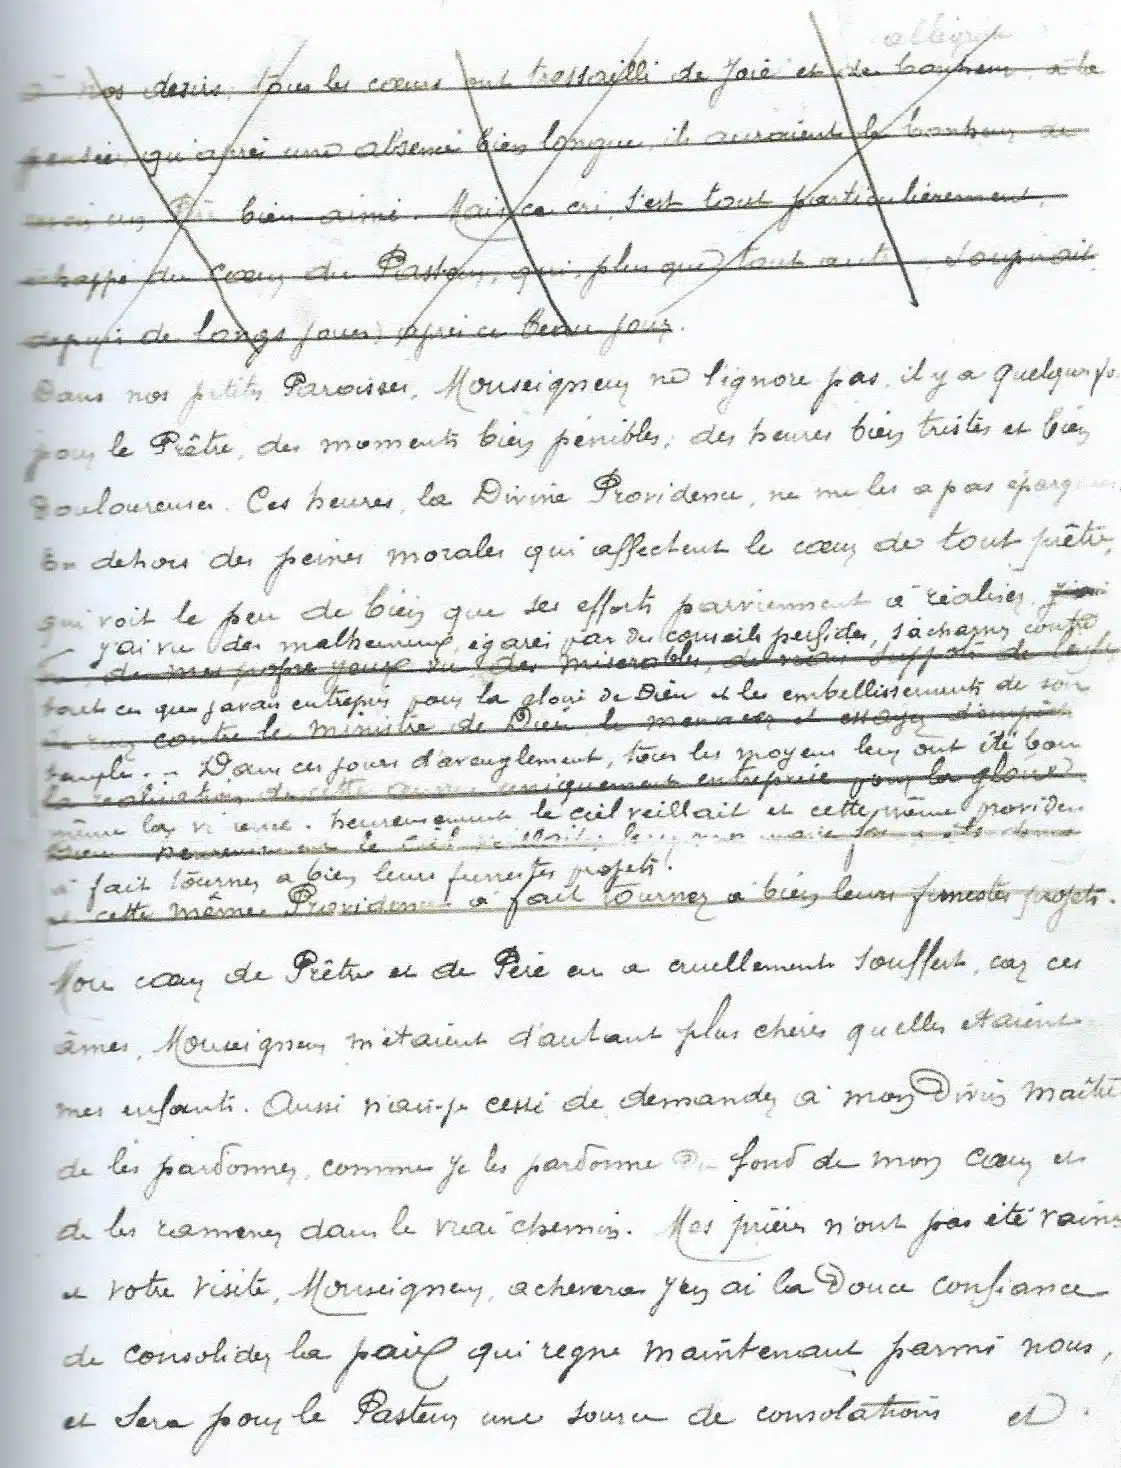 allégresse
à nos desirs, tous les cœurs ont tressailli de joie et de bonheur, à la
pensée, qu'après une absence bien longue, ils auraient le bonheur de
revoir un Père bien aimé. Mais ce cri, s'est tout particulièrement,
échappé du cœur du Pasteur, qui, plus que tout autre, soupirait
depuis de longs jours, après ce beau jour.
Dans nos petites Paroisses, Monseigneur ne l'ignore pas, il y a quelques fo
pour le Prêtre, des moments bien pénibles, des heures bien tristes et bien
Douloureuses. Ces heures, la Divine Providence, ne me les a pas épargnées
En dehors des peines morales qui affectent le cœur de tout prêtre,
qui voit le peu de bien que ses efforts parviennent à réaliser, j'ai
j'ai vu des malheureux, égarés par des conseils perfides, s'acharner contre
de mes propres yeux vu des misérables, de
tout ce que j'avais entrepris pour la gloire de Dieu et les embellissements de son
contre le ministre de Dieu le menacer et essayer d'empêcher
temple. - Dans ces jours d'aveuglement, tous les moyens leur ont été bons
la réalisation de cette œuvre uniquement entreprise pour la gloire
même la heureusement le ciel veillait et cette même providence
Dieu heureusement le Ciel veillait,
à fait tourner a bien leurs funestes projets!
et cette même Providence à fait tourner à bien leurs funestes projets.
Mon cœur de Prêtre et de Père en a cruellement souffert, car ces
âmes, Monseigneur m'étaient d'autant plus chères qu'elles étaient
mes enfants. Aussi n'ai-je cessé de demander à mon Divin Maître
de les pardonner, comme je les pardonne du fond de mon cœur et
de les ramener dans le vrai chemin. Mes prières n'ont pas été vaines
et votre visite, Monseigneur, achevera j'en ai la Douce confiance
de consolider la paix qui règne maintenant parmi nous,
et sera pour le Pasteur une source de consolations et